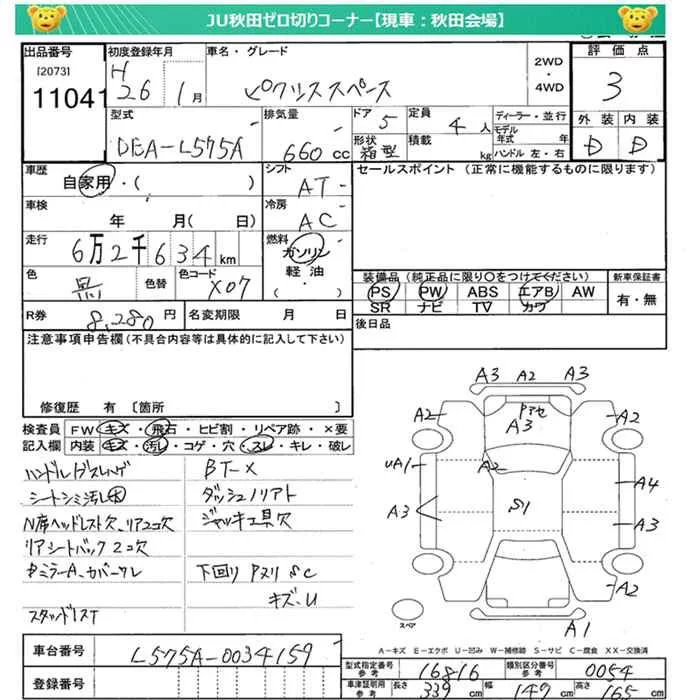 JU秋田ゼロ切りコーナー【現車：秋田会場】
出品番号 初度登録年月 車名・グレード 2WD ・ 4WD 評価点
[2073] 11041 H26 1月 ピクシススペース 3
型式 排気量 ドア 定員 ディーラー・並行 外装 内装
DBA-L575A 660cc 5 4人 モデル年式 年 D D
形状 箱型 積載 kg ハンドル 左・右
車歴 自家用・( ) シフト AT セールスポイント (正常に機能するものに限ります)
車検 年 月( 日) 冷房 AC
走行 6万2千634km 燃料 ガソリン 軽油 ・( )
色 黒 色替 色コード X07 装備品(純品正に限り○をつけてください) 新車保証書
PS PW ABS エアB AW 有・無
SR ナビ TV カワ
R券 8,280円 名変期限 月 日 後日品
注意事項申告欄(不具合内容等は具体的に記入して下さい)
修復歴 有 〔箇所 〕
検査員 FW キズ・飛石・ヒビ割・リペア跡・×要
記入欄 内装 キズ・汚レ・コゲ・穴・スレ・キレ・破レ
BT-X
シートシミ汚レ大
N席ヘッドレスト欠、リア2コ欠
ジャッキ工具欠
リアシートバック2コ欠
下回り Pヌリ SC
キズ、U
A3 A2 A3
A2 Pアセ A3 A2
UA1 A2 A4
S1
A3 A3
A2
A1
スペア
A－キズ E－エクボ U－凹み W－補修跡 S－サビ C－腐食 XX－交換済
車台番号 L575A-0034159
登録番号
型式指定番号 参考 16816 類別区分番号 参考 0054
車津証明用 参考 長さ 339cm 幅 147cm 高さ 165cm